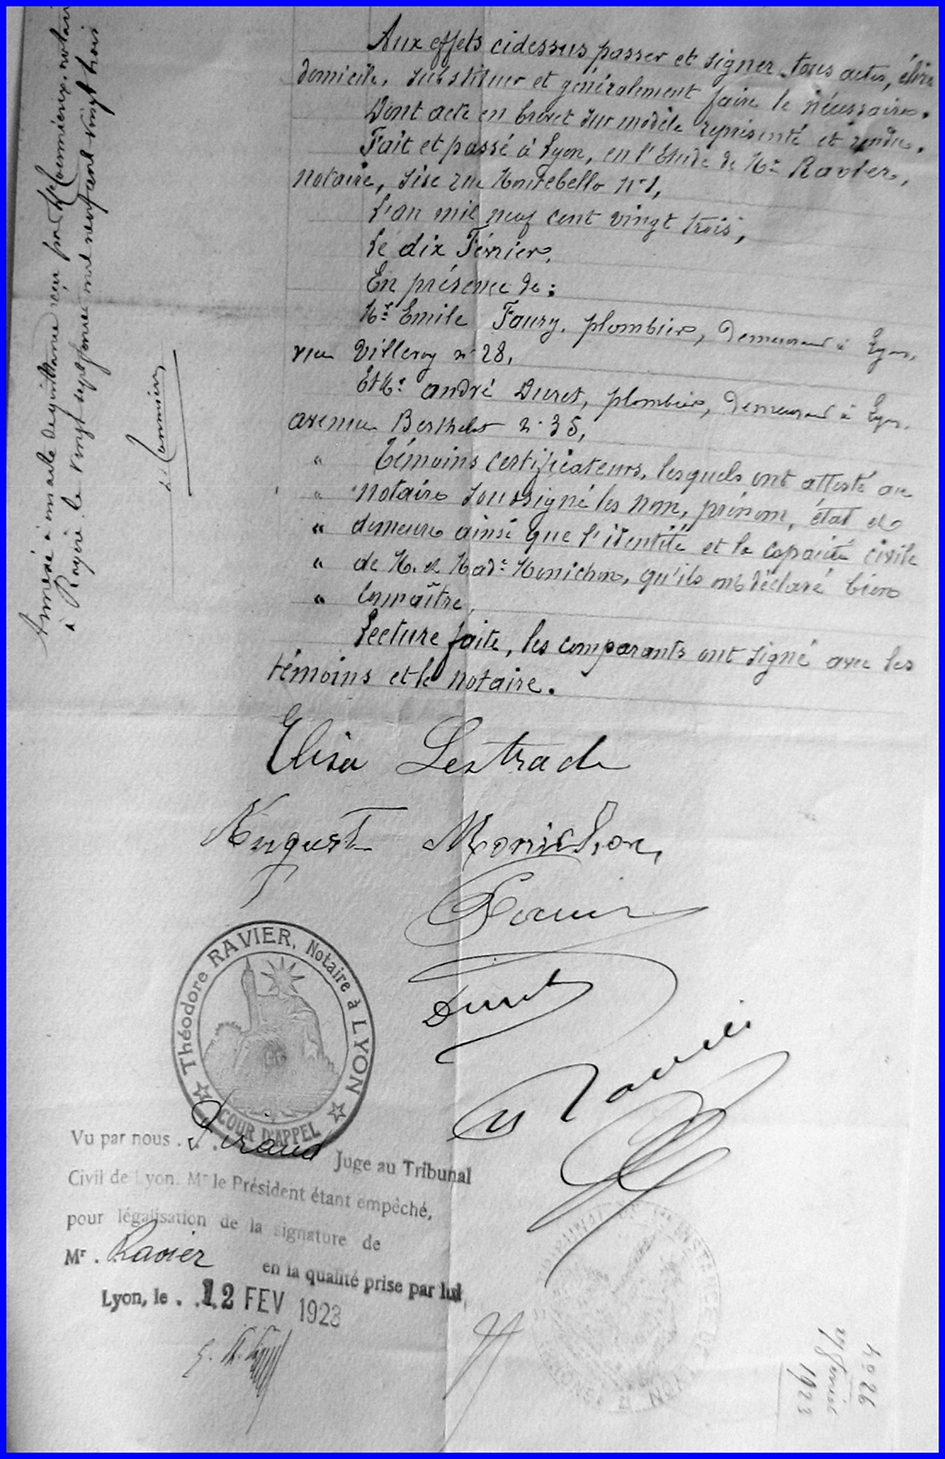 Aux effets cidessus passer et signer tous actes, élire
domicile, substituer et généralement faire le nécessaire.
Dont acte en brevet sur modèle représenté et rendu.
Fait et passé à Lyon, en l'étude de Me Ravier,
notaire, sise rue Montebello No 1,
L'an mil neuf cent vingt trois,
Le dix Février.
En présence de:
Mr Emile Faury, plombier, demeurant à Lyon,
rue Villeroy no 28,
Et Mr André Duret, plombier, demeurant à Lyon,
avenue Berthelot no 35,
" Témoins certificateurs, lesquels ont attesté au
" notaire soussigné les nom, prénom, état et
" demeure ainsi que l'identité et la capacité civile
" de M. et Made Monichon, qu'ils ont déclaré bien
" connaître.
Lecture faite, les comparants ont signé avec les
témoins et le notaire.
Elisa Lestrade
August Monichon,
Duret
Ravier
Théodore RAVIER, Notaire à LYON
COUR D'APPEL
Vu par nous . Juge au Tribunal
Civil de Lyon. Mr le Président étant empêché,
pour légalisation de la signature de
Mr . Ravier en la qualité prise par lui
Lyon, le . . 12 FEV 1923
Annexé à minute de quittance reçu par Me notaire
à le vingt neuf cent vingt trois
4026
1923